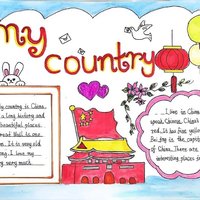 my
country
My country is China.
a long history and
beautiful places.
Great Wall is one
em. It is very old
long. I love my
try very much
I live in China
speak Chinese. China's
red. It has five yellow
Beijing is the capital
of China. There are
interesting places in